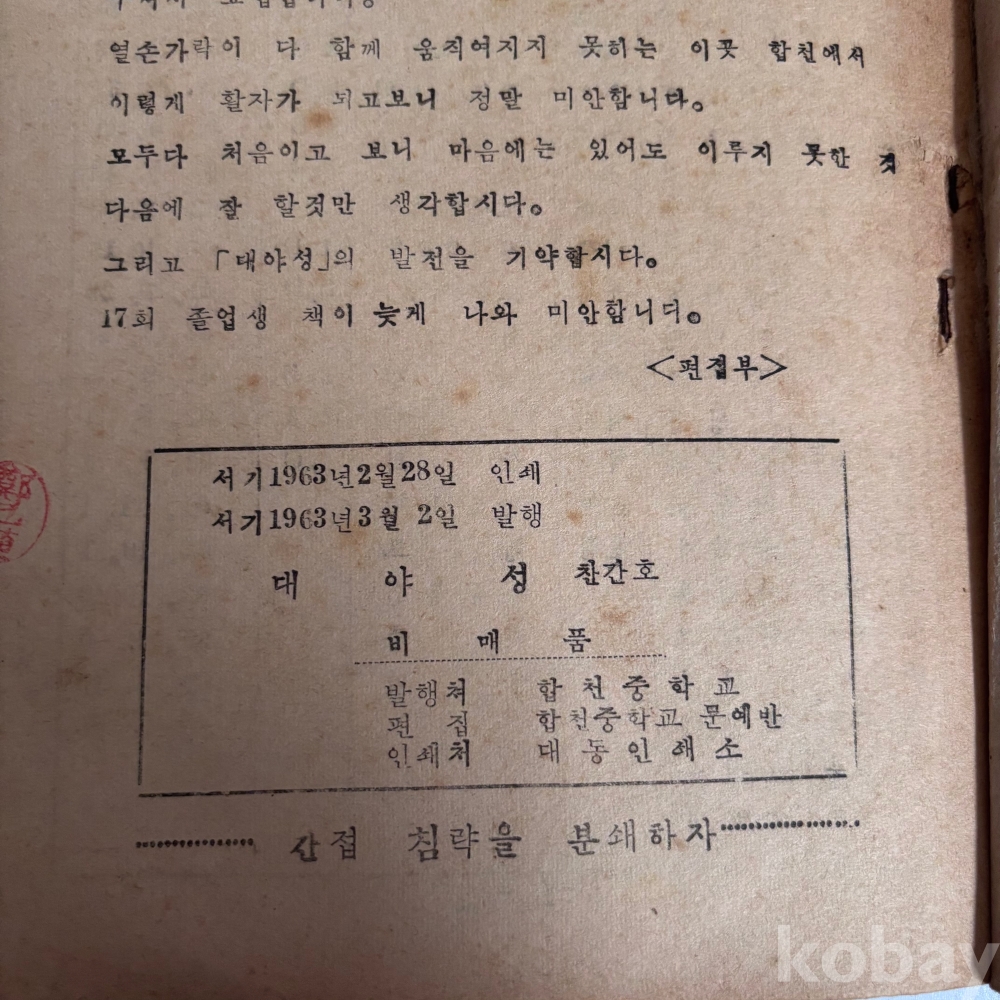 열손가락이 다 함께 움직여지지 못하는 이곳 합천에서
이렇게 활자가 되고보니 정말 미안합니다。
모두다 처음이고 보니 마음에는 있어도 이루지 못한 것
다음에 잘 할것만 생각합시다。
그리고 「대야성」의 발전을 기약합시다。
17회 졸업생 책이 늦게 나와 미안합니다。
<편집부>
서기1963년2월28일 인쇄
서기1963년3월 2일 발행
대 야 성 찬간호
비 매 품
발행처 합천중학교
편 집 합천중학교 문예반
인쇄처 대동인쇄소
간접 침략을 분쇄하자
kobay